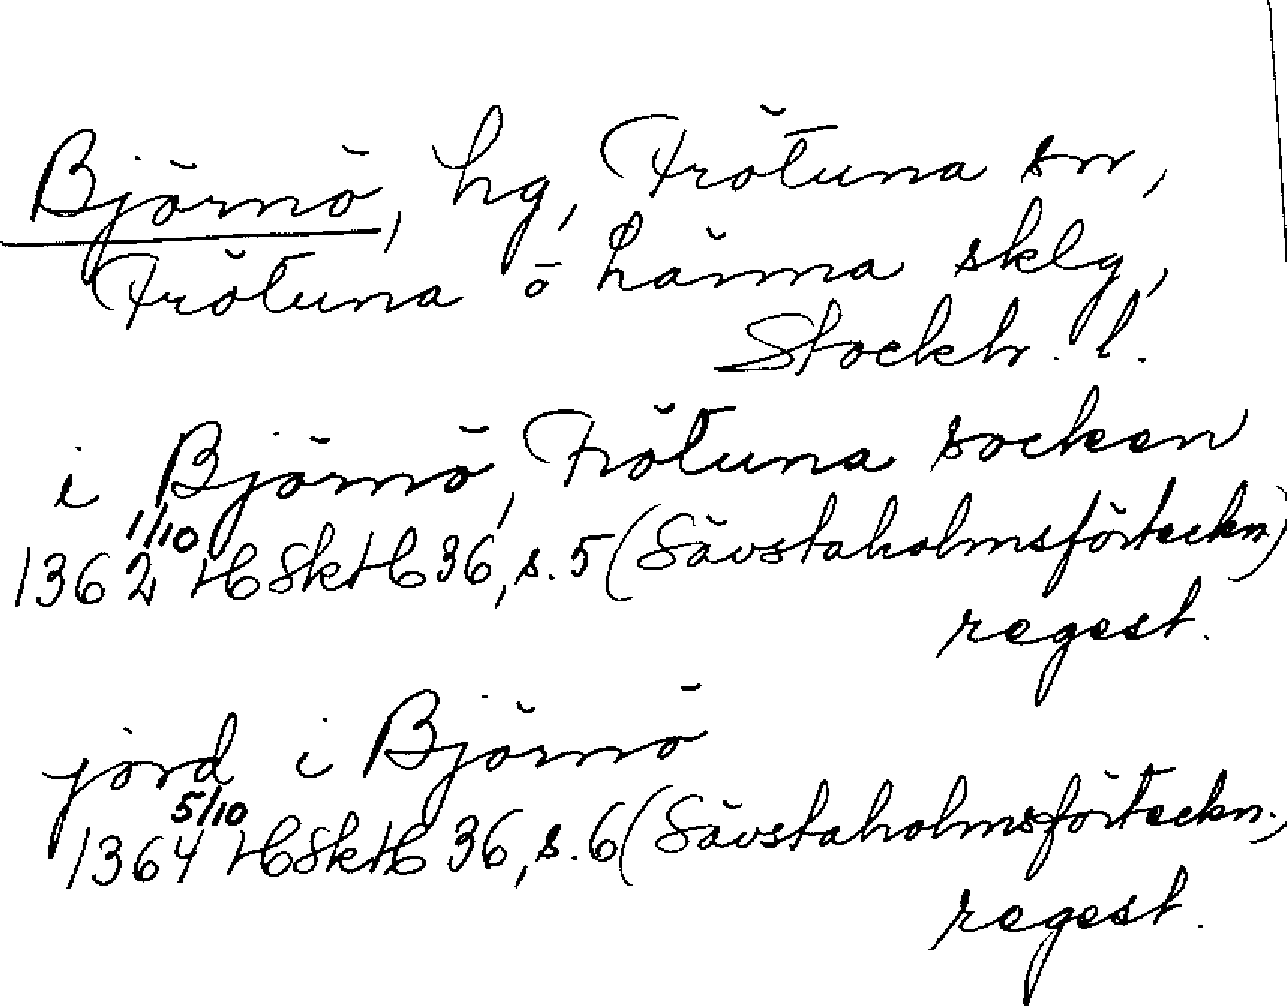 Björnö, hg, Frötuna sn,
Frötuna o Länna sklg,
Stockh. l.
i Björnö, Frötuna socken
1/10
1362 HSkH 36, s. 5 (Sävstaholmsförteckn.)
regest.
jord i Björnö
5/10
1364 HSkH 36, s. 6 (Sävstaholmsförteckn.,
regest.